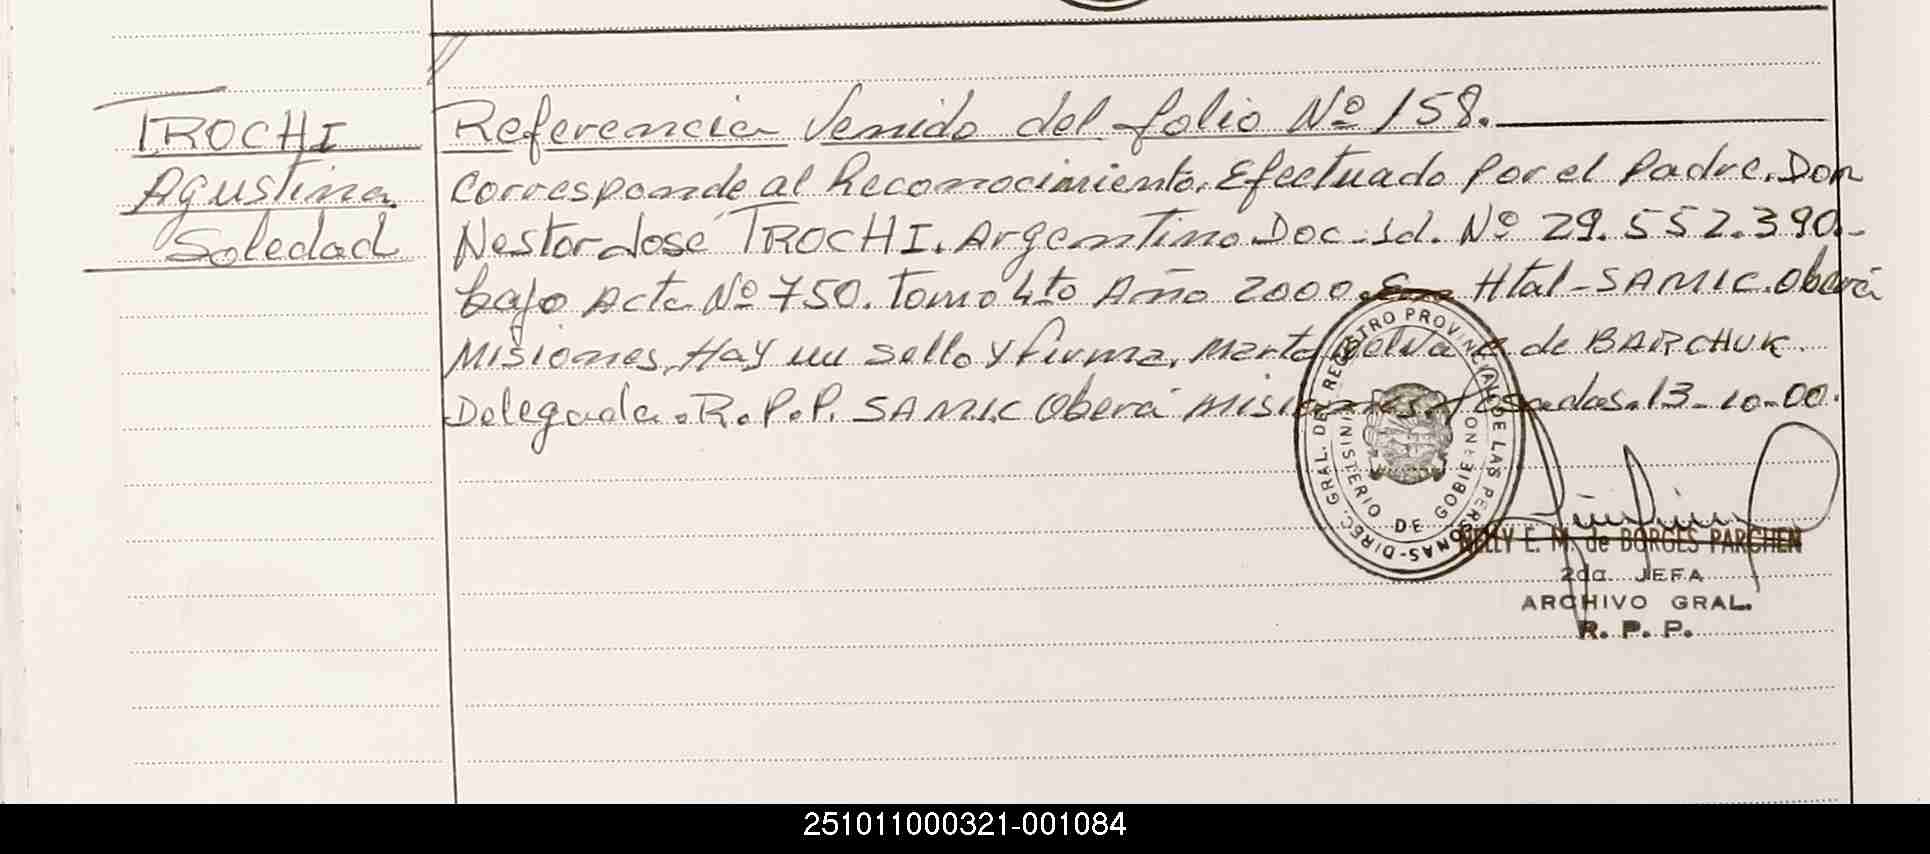 TROCHI
Agustina
Soledad
Referencia Venido del folio Nº 158.
Corresponde al Reconocimiento. Efectuado Por el Padre. Don
Nestor Jose TROCHI. Argentino Doc. Id. Nº 29.552.390.-
bajo Acta Nº 750. Tomo 4to Año 2000. En Htal-SAMIC. Oberá
Misiones, Hay un sello y firma, Marta de BARCHUK.
Delegada. R.P.P. SAMIC Oberá Misiones. Posadas. 13-10-00.
DIREC. GRAL. DEL REGISTRO PROVINCIAL DE LAS PERSONAS-
MINISTERIO DE GOBIERNO
NELLY E. M. de BORGES PARCHEN
2da. JEFA
ARCHIVO GRAL.
R. P. P.
251011000321-001084